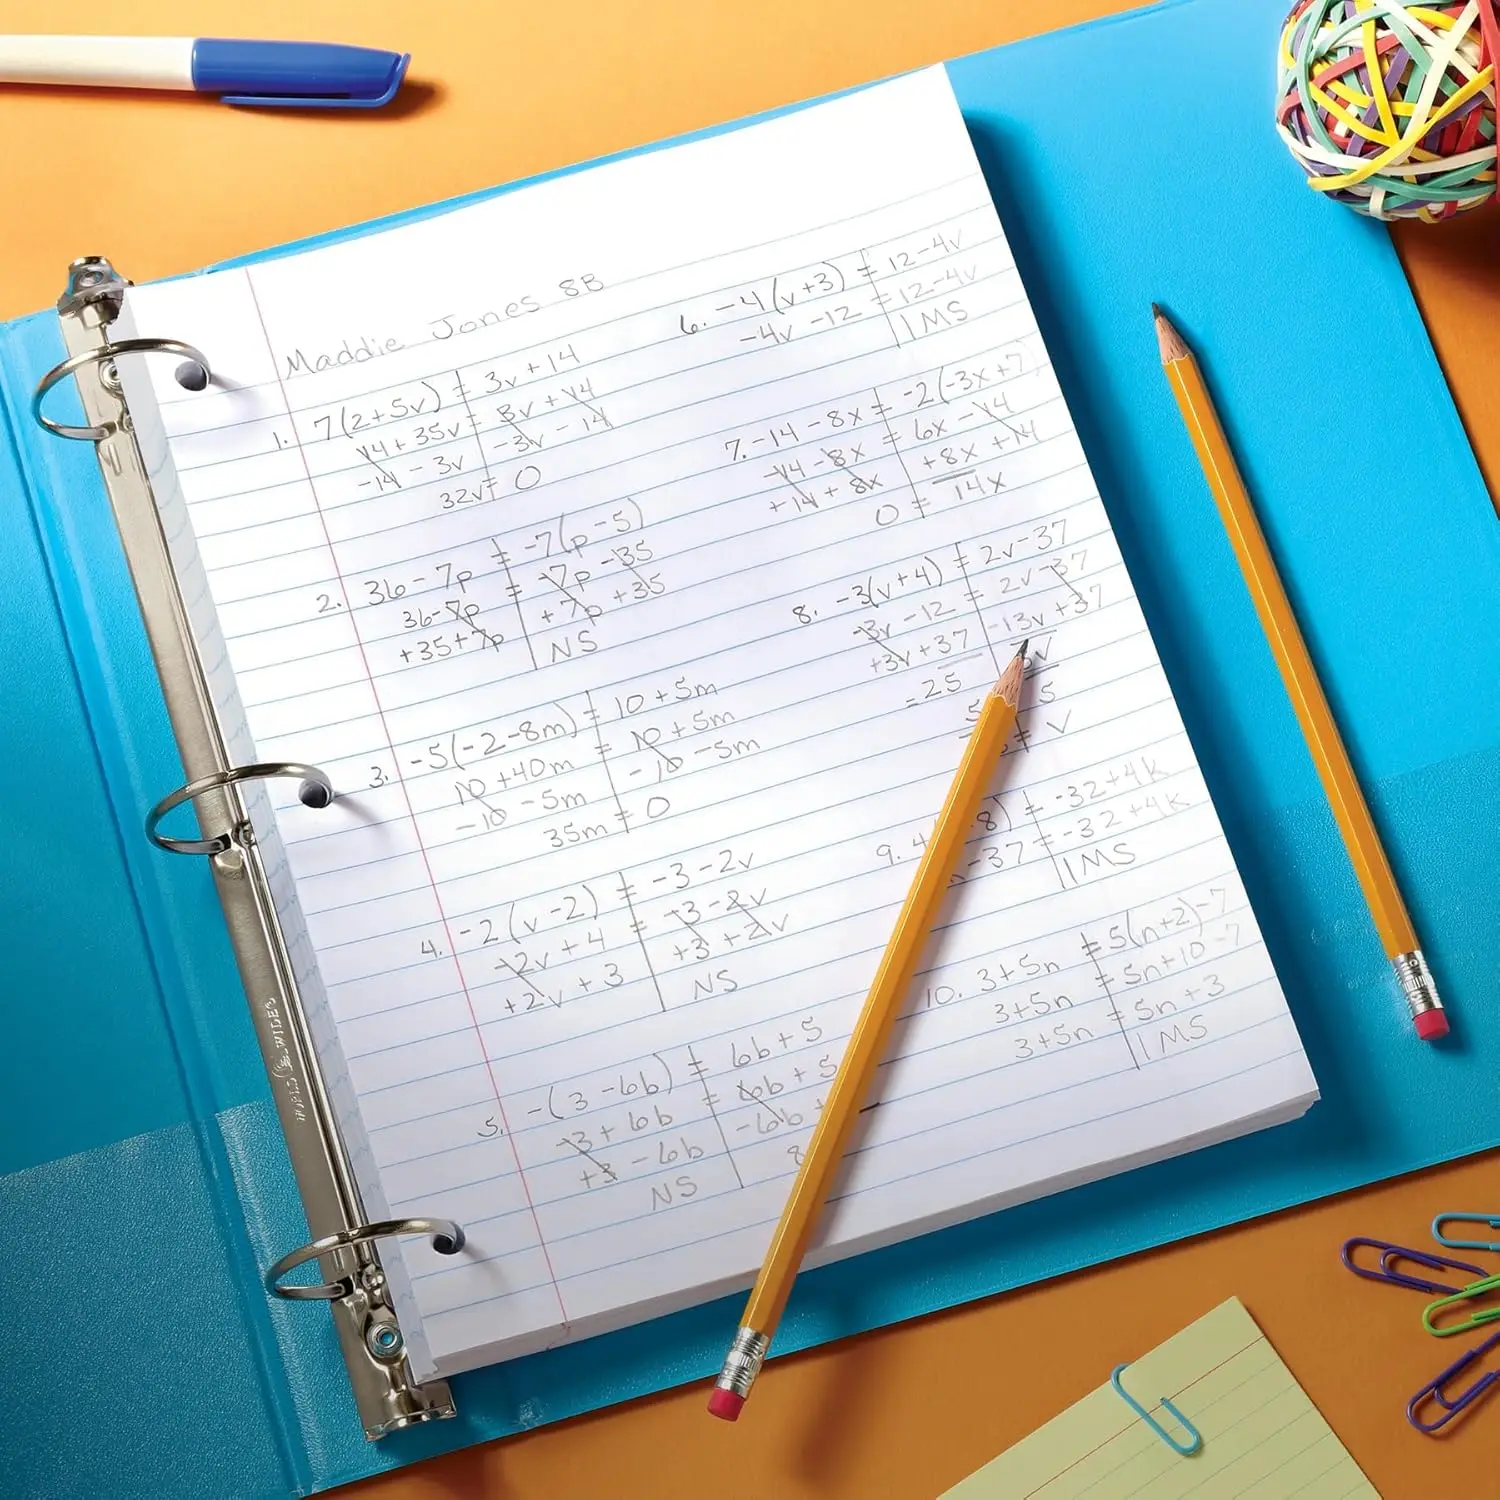 Maddie Jones 8B
1. 7(2+5v) = 3v + 14
14 + 35v = 3v + 14
-14 - 3v -3v - 14
32v = 0
2. 36 - 7p = -7(p - 5)
36 - 7p = -7p - 35
+35 + 7p +7p +35
NS
3. -5(-2 - 8m) = 10 + 5m
10 + 40m = 10 + 5m
-10 - 5m -10 - 5m
35m = 0
4. -2(v - 2) = -3 - 2v
-2v + 4 = -3 - 2v
+2v + 3 +3 + 2v
NS
5. -(3 - 6b) = 6b + 5
-3 + 6b = 6b + 5
+3 - 6b -6b +
NS 8
6. -4(v + 3) = 12 - 4v
-4v - 12 = 12 - 4v
IMS
7. -14 - 8x = -2(-3x + 7)
-14 - 8x = 6x - 14
+14 + 8x +8x + 14
0 = 14x
8. -3(v + 4) = 2v - 37
-3v - 12 = 2v - 37
+3v + 37 -13v + 37
= 25 5v
5 5
= v
9. 4( 8) = -32 + 4k
-37 = -32 + 4k
IMS
10. 3 + 5n = 5(n + 2) - 7
3 + 5n = 5n + 10 - 7
3 + 5n = 5n + 3
IMS